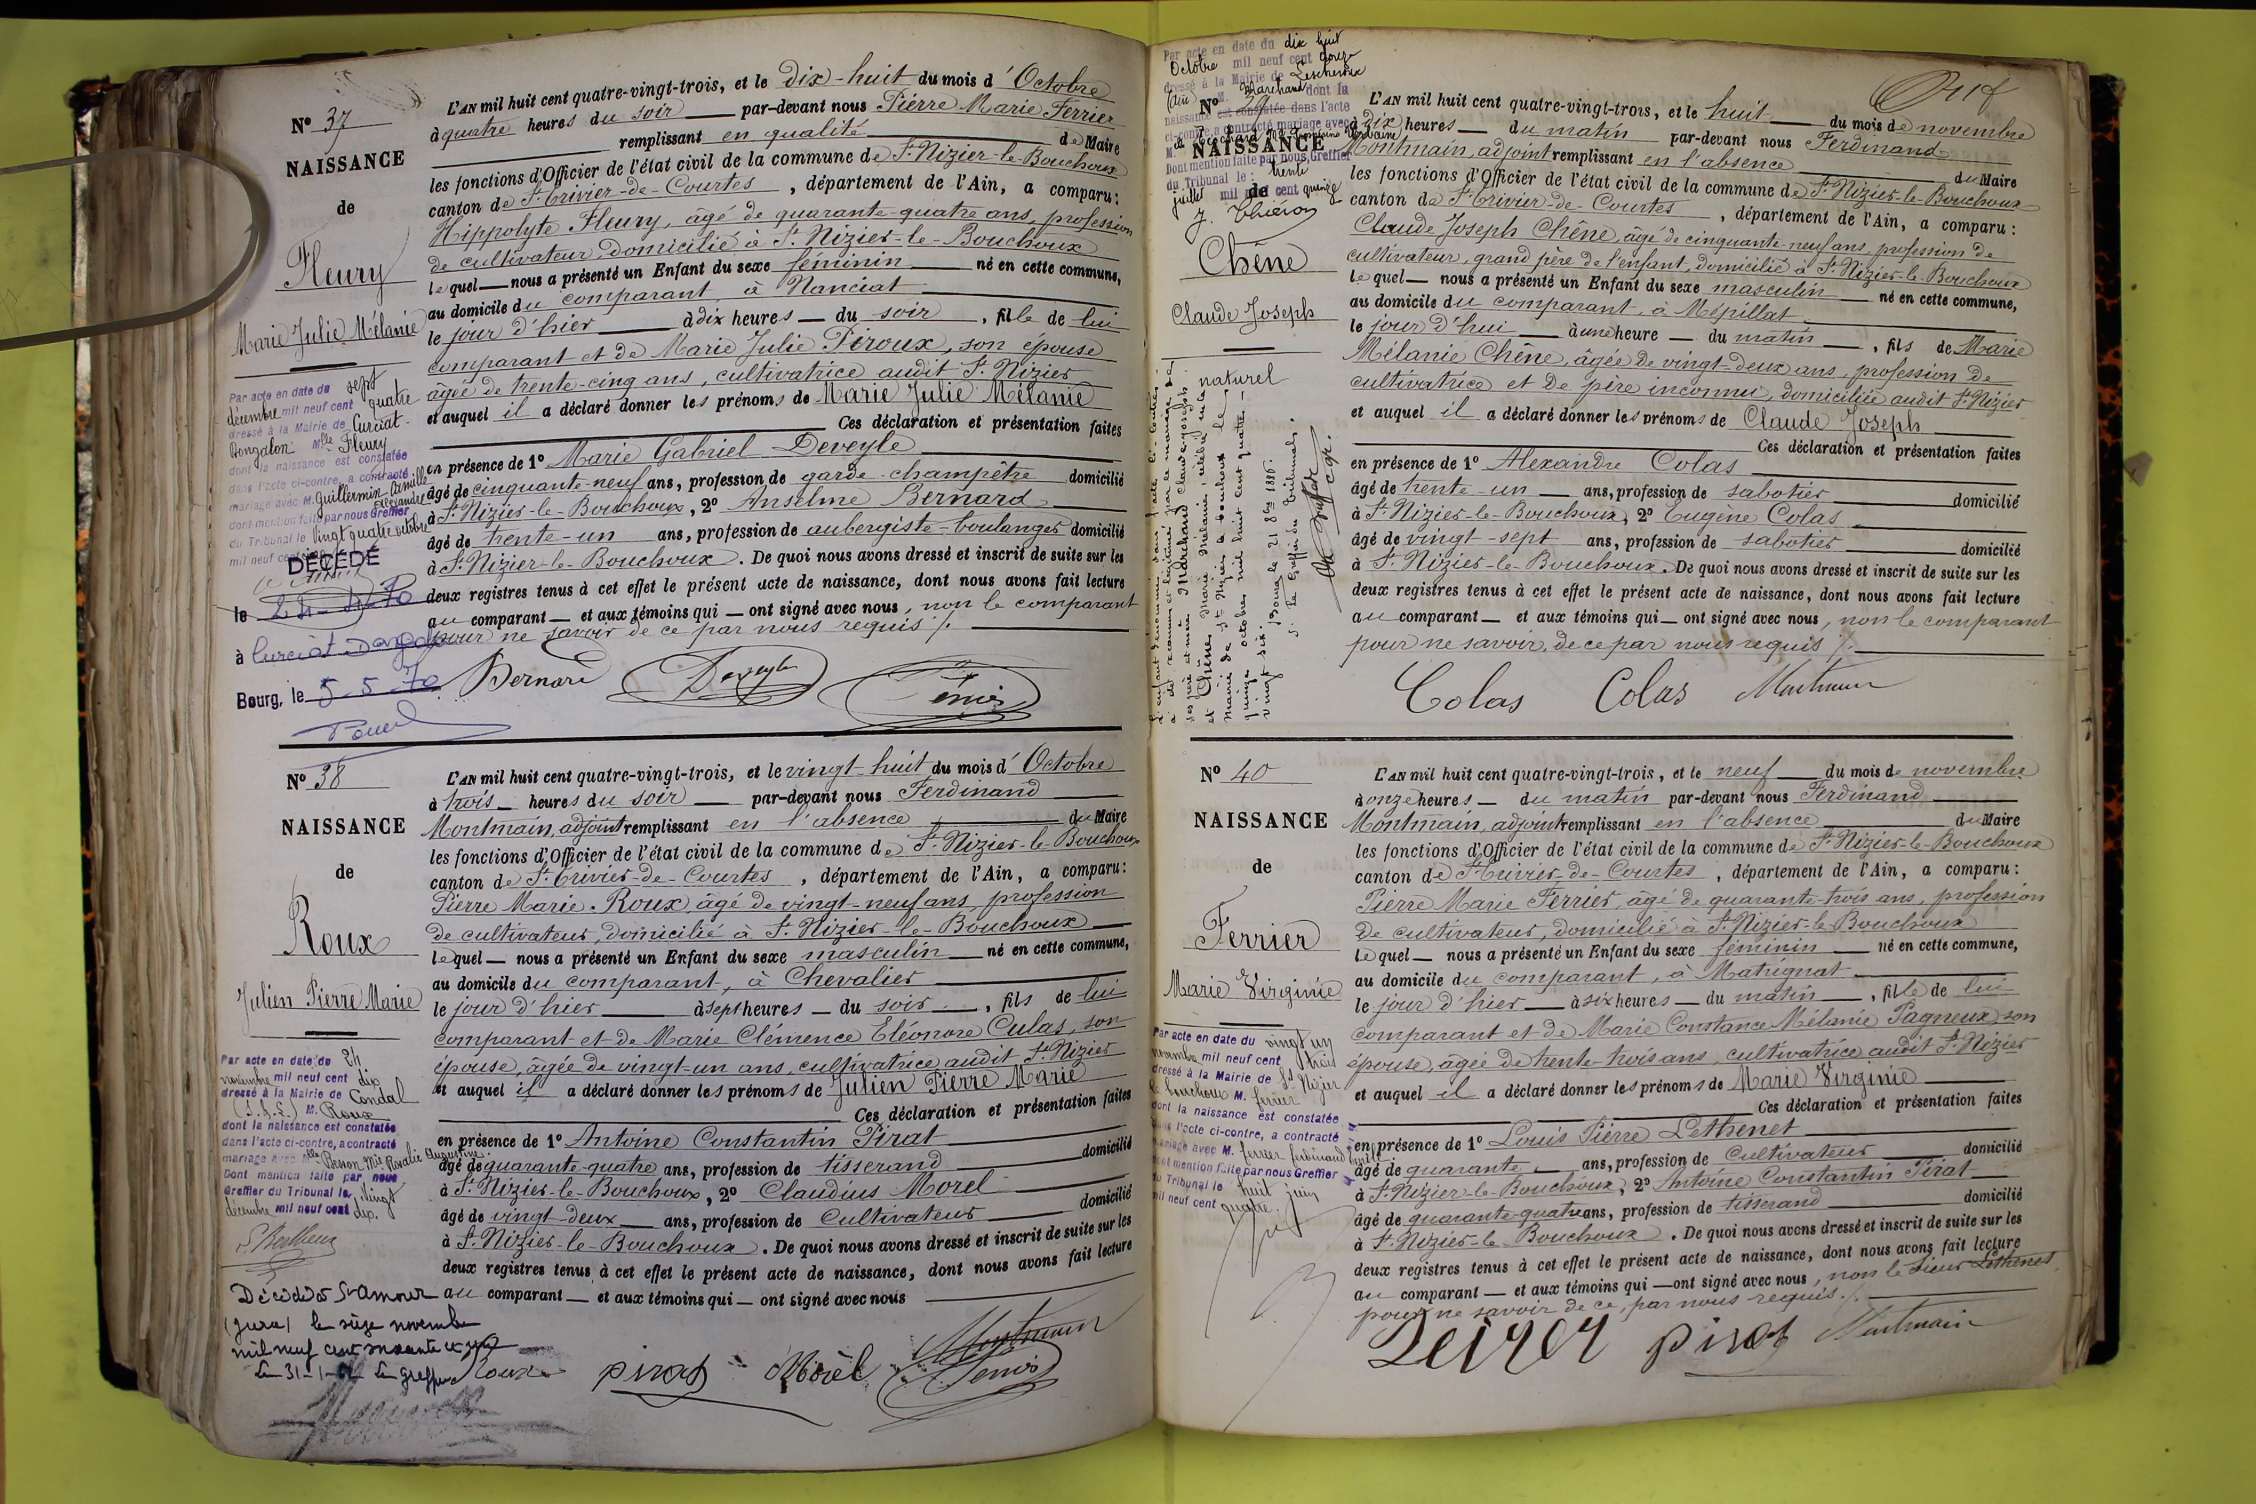 N° 37
NAISSANCE
de
Fleury
Marie Julie Mélanie
Par acte en date du sept
décembre mil neuf cent quatre
dressé à la Mairie de Curciat-
Dongalon Mlle Fleury
dont la naissance est constatée
dans l'acte ci-contre, a contracté
mariage avec M. Guillermin Camille
Alexandre
dont mention faite par nous Greffier
du Tribunal le vingt quatre octobre
mil neuf cent
DÉCÉDÉ
le 24-4-70
à Curciat Dongalon
Bourg, le 5-5-70
L'AN mil huit cent quatre-vingt-trois, et le dix-huit du mois d'Octobre
à quatre heures du soir par-devant nous Pierre Marie Ferrier
remplissant en qualité de Maire
les fonctions d'Officier de l'état civil de la commune de St Nizier-le-Bouchoux
canton de St Trivier-de-Courtes, département de l'Ain, a comparu:
Hippolyte Fleury, âgé de quarante-quatre ans, profession
de cultivateur, domicilié à St Nizier-le-Bouchoux
lequel nous a présenté un Enfant du sexe féminin né en cette commune,
au domicile du comparant, à Nanciat
le jour d'hier à dix heures du soir, fille de lui
comparant et de Marie Julie Piroux, son épouse
âgée de trente-cinq ans, cultivatrice audit St Nizier
et auquel il a déclaré donner les prénoms de Marie Julie Mélanie
Ces déclaration et présentation faites
en présence de 1° Marie Gabriel Deveyle
âgé de cinquante-neuf ans, profession de garde-champêtre domicilié
à St Nizier-le-Bouchoux, 2° Anselme Bernard
âgé de trente-un ans, profession de aubergiste-boulanger domicilié
à St Nizier-le-Bouchoux. De quoi nous avons dressé et inscrit de suite sur les
deux registres tenus à cet effet le présent acte de naissance, dont nous avons fait lecture
au comparant et aux témoins qui ont signé avec nous, non le comparant
pour ne savoir de ce par nous requis /.
Bernard Deveyle Ferrier
N° 38
NAISSANCE
de
Roux
Julien Pierre Marie
Par acte en date du 24
novembre mil neuf cent dix
dressé à la Mairie de Condal
(S.&L.) M. Roux
dont la naissance est constatée
dans l'acte ci-contre, a contracté
mariage avec Mlle Besson Mie Rosalie Augustine.
Dont mention faite par nous
Greffier du Tribunal le vingt
décembre mil neuf cent dix.
Décédé à St-Amour
(Jura) le seize novembre
mil neuf cent soixante et un
Le 31-1-62 Le greffier
L'AN mil huit cent quatre-vingt-trois, et le vingt-huit du mois d'Octobre
à trois heures du soir par-devant nous Ferdinand
Montmain, adjoint remplissant en l'absence du Maire
les fonctions d'Officier de l'état civil de la commune de St Nizier-le-Bouchoux
canton de St Trivier-de-Courtes, département de l'Ain, a comparu:
Pierre Marie Roux, âgé de vingt-neuf ans, profession
de cultivateur, domicilié à St Nizier-le-Bouchoux
lequel nous a présenté un Enfant du sexe masculin né en cette commune,
au domicile du comparant, à Chevalier
le jour d'hier à sept heures du soir, fils de lui
comparant et de Marie Clémence Eléonore Culas, son
épouse, âgée de vingt-un ans, cultivatrice audit St Nizier
et auquel il a déclaré donner les prénoms de Julien Pierre Marie
Ces déclaration et présentation faites
en présence de 1° Antoine Constantin Pirat
âgé de quarante-quatre ans, profession de tisserand domicilié
à St Nizier-le-Bouchoux, 2° Claudius Morel
âgé de vingt-deux ans, profession de Cultivateur domicilié
à St Nizier-le-Bouchoux. De quoi nous avons dressé et inscrit de suite sur les
deux registres tenus à cet effet le présent acte de naissance, dont nous avons fait lecture
au comparant et aux témoins qui ont signé avec nous
Montmain
Roux pirat Morel Ferrier
Par acte en date du dix huit
Octobre mil neuf cent douze
dressé à la Mairie de Lescheroux
(Ain) M. Marchand dont la
naissance est constatée dans l'acte
ci-contre, a contracté mariage avec
Dont mention faite par nous, Greffier
du Tribunal le trente
juillet mil neuf cent quinze
N° 39
NAISSANCE
de
Chêne
Claude Joseph
L'enfant dénommé dans l'acte ci-contre
a été reconnu et légitimé par le mariage de
ses père et mère Marchand Claude-Joseph
et Chêne Marie Mélanie, célébré en la
mairie de St Nizier le bouchoux le
quinze octobre mil huit cent quatre-
vingt six.
Bourg le 21 8bre 1886.
P. le Greffier du Tribunal.
naturel
L'AN mil huit cent quatre-vingt-trois, et le huit du mois de novembre
à dix heures du matin par-devant nous Ferdinand
Montmain, adjoint remplissant en l'absence du Maire
les fonctions d'Officier de l'état civil de la commune de St Nizier-le-Bouchoux
canton de St Trivier-de-Courtes, département de l'Ain, a comparu:
Claude Joseph Chêne, âgé de cinquante-neuf ans, profession de
cultivateur, grand père de l'enfant, domicilié à St Nizier-le-Bouchoux
lequel nous a présenté un Enfant du sexe masculin né en cette commune,
au domicile du comparant, à Mépillat
le jour d'hui à une heure du matin, fils de Marie
Mélanie Chêne, âgée de vingt-deux ans, profession de
cultivatrice et de père inconnu, domiciliée audit St Nizier
et auquel il a déclaré donner les prénoms de Claude Joseph
Ces déclaration et présentation faites
en présence de 1° Alexandre Colas
âgé de trente-un ans, profession de sabotier domicilié
à St Nizier-le-Bouchoux, 2° Eugène Colas
âgé de vingt-sept ans, profession de sabotier domicilié
à St Nizier-le-Bouchoux. De quoi nous avons dressé et inscrit de suite sur les
deux registres tenus à cet effet le présent acte de naissance, dont nous avons fait lecture
au comparant et aux témoins qui ont signé avec nous, non le comparant
pour ne savoir, de ce par nous requis /.
Colas Colas Montmain
N° 40
NAISSANCE
de
Ferrier
Marie Virginie
Par acte en date du vingt un
novembre mil neuf cent trois
dressé à la Mairie de St Nizier
le bouchoux M. ferrier
dont la naissance est constatée
dans l'acte ci-contre, a contracté
mariage avec M. ferrier ferdinand
dont mention faite par nous Greffier
du Tribunal le huit juin
mil neuf cent quatre.
L'AN mil huit cent quatre-vingt-trois, et le neuf du mois de novembre
à onze heures du matin par-devant nous Ferdinand
Montmain, adjoint remplissant en l'absence du Maire
les fonctions d'Officier de l'état civil de la commune de St Nizier-le-Bouchoux
canton de St Trivier-de-Courtes, département de l'Ain, a comparu:
Pierre Marie Ferrier, âgé de quarante-trois ans, profession
de cultivateur, domicilié à St Nizier-le-Bouchoux
lequel nous a présenté un Enfant du sexe féminin né en cette commune,
au domicile du comparant, à Matrignat
le jour d'hier à six heures du matin, fille de lui
comparant et de Marie Constance Mélanie Pagneux, son
épouse, âgée de trente-trois ans, cultivatrice audit St Nizier
et auquel il a déclaré donner les prénoms de Marie Virginie
Ces déclaration et présentation faites
en présence de 1° Louis Pierre Lethenet
âgé de quarante ans, profession de Cultivateur domicilié
à St Nizier-le-Bouchoux, 2° Antoine Constantin Pirat
âgé de quarante-quatre ans, profession de tisserand domicilié
à St Nizier-le-Bouchoux. De quoi nous avons dressé et inscrit de suite sur les
deux registres tenus à cet effet le présent acte de naissance, dont nous avons fait lecture
au comparant et aux témoins qui ont signé avec nous, non le sieur Lethenet
pour ne savoir de ce, par nous requis /.
pirat Montmain